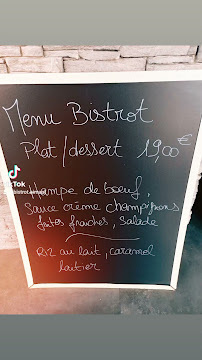 Menu Bistrot
Plat/dessert 19,00€
Hampe de boeuf,
sauce crème champignons
frites fraiches, salade
Riz au lait, caramel
laitier
TikTok